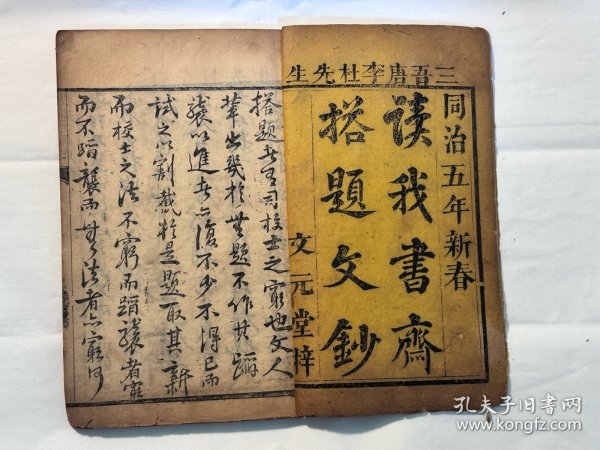 三吾唐李杜先生
同治五年新春
读我書齋
搭題文鈔
文元堂梓
搭題者有司校士之窮也文人
輩出幾於無題不作其蹈
襲以進者亦復不少不得已而
試之以割截於是題取其新
而校士之法不窮而蹈襲者窮
而不蹈襲而無法者亦窮何
孔夫子旧书网
www.kongfz.com